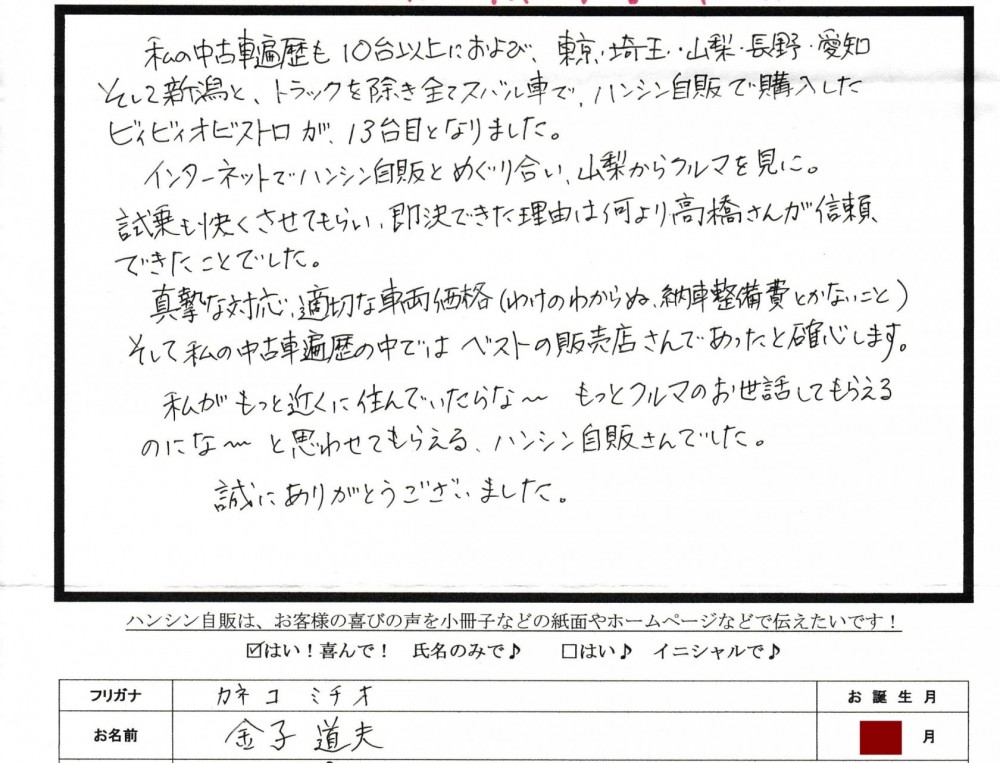 私の中古車遍歴も10台以上におよび、東京・埼玉・山梨・長野・愛知
そして新潟と、トラックを除き全てスバル車で、ハンシン自販で購入した
ビィビィオビストロが、13台目となりました。
インターネットでハンシン自販とめぐり合い、山梨からクルマを見に。
試乗も快くさせてもらい、即決できた理由は何より高橋さんが信頼
できたことでした。
真摯な対応、適切な車両価格(わけのわからぬ、納車整備費とかないこと)
そして私の中古車遍歴の中ではベストの販売店さんであったと確心します。
私がもっと近くに住んでいたらな〜 もっとクルマのお世話してもらえる
のにな〜と思わせてもらえる、ハンシン自販さんでした。
誠にありがとうございました。
ハンシン自販は、お客様の喜びの声を小冊子などの紙面やホームページなどで伝えたいです！
☑はい！喜んで！ 氏名のみで♪ □はい♪ イニシャルで♪
フリガナ カネコ ミチオ お誕生月
お名前 金子 道夫 月